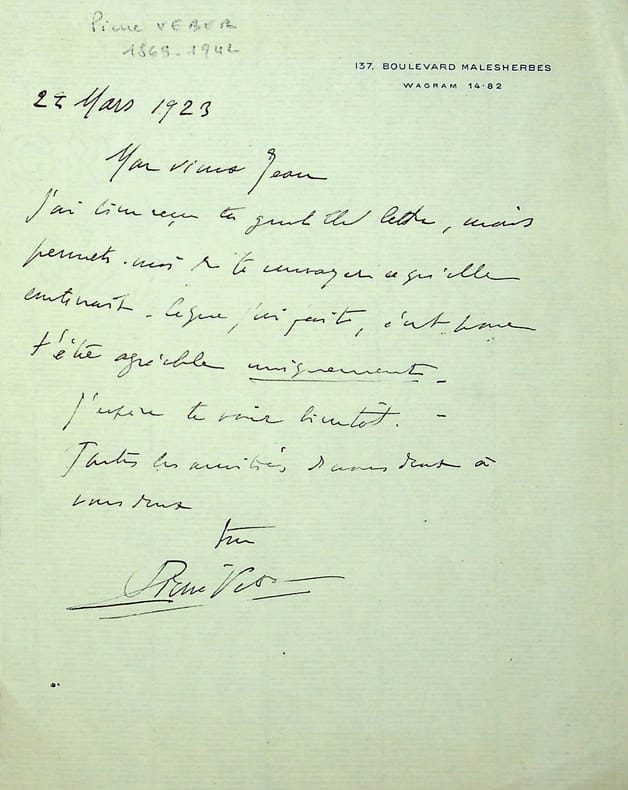 Pierre VEBER
1869-1942
137, BOULEVARD MALESHERBES
WAGRAM 14-82
22 Mars 1923
Mon vieux Jean
J'ai bien reçu ta gentille lettre, mais
permets-moi de te renvoyer ce qu'elle
contenait. Ce que j'ai fait, c'est pour
t'être agréable uniquement.
J'espère te voir bientôt. -
Toutes les amitiés de nous deux à
vous deux
ton
Pierre Veber